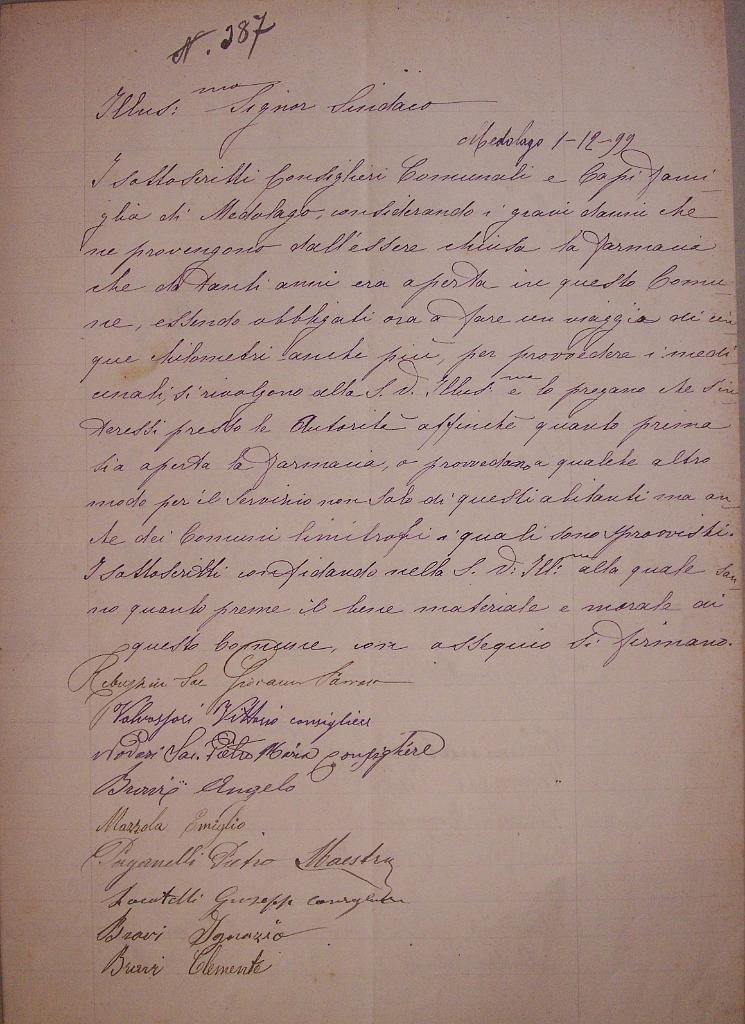 N. 287
Illus:mo Signor Sindaco
Medolago 1-12-99
I sottoscritti Consiglieri Comunali e Capi Fami-
glia di Medolago, considerando i gravi danni che
ne provengono dall'essere chiusa la farmacia
che da tanti anni era aperta in questo Comu-
ne, essendo obbligati ora a fare un viaggio di cin-
que chilometri anche più, per provvedere i medi-
cinali, si rivolgono alla S. V. Illus:ma e lo pregano che s'in-
teressi presso le Autorità affinchè quanto prima
sia aperta la farmacia, o provvedano a qualche altro
modo per il servizio non solo di questi abitanti ma an-
che dei Comuni limitrofi i quali sono sprovvisti.
I sottoscritti confidando nella S. V. Ill:ma alla quale san-
no quanto preme il bene materiale e morale di
questo Comune, con ossequio si firmano.
Sac Giovanni Parroco
Valvassori Vittorio consigliere
Nodari Sac. Pietro Maria Consigliere
Bravi Angelo
Mazzola Emiglio
Paganelli Pietro Maestro
Locatelli Giuseppe consigliere
Bravi Ignazio
Bravi Clemente